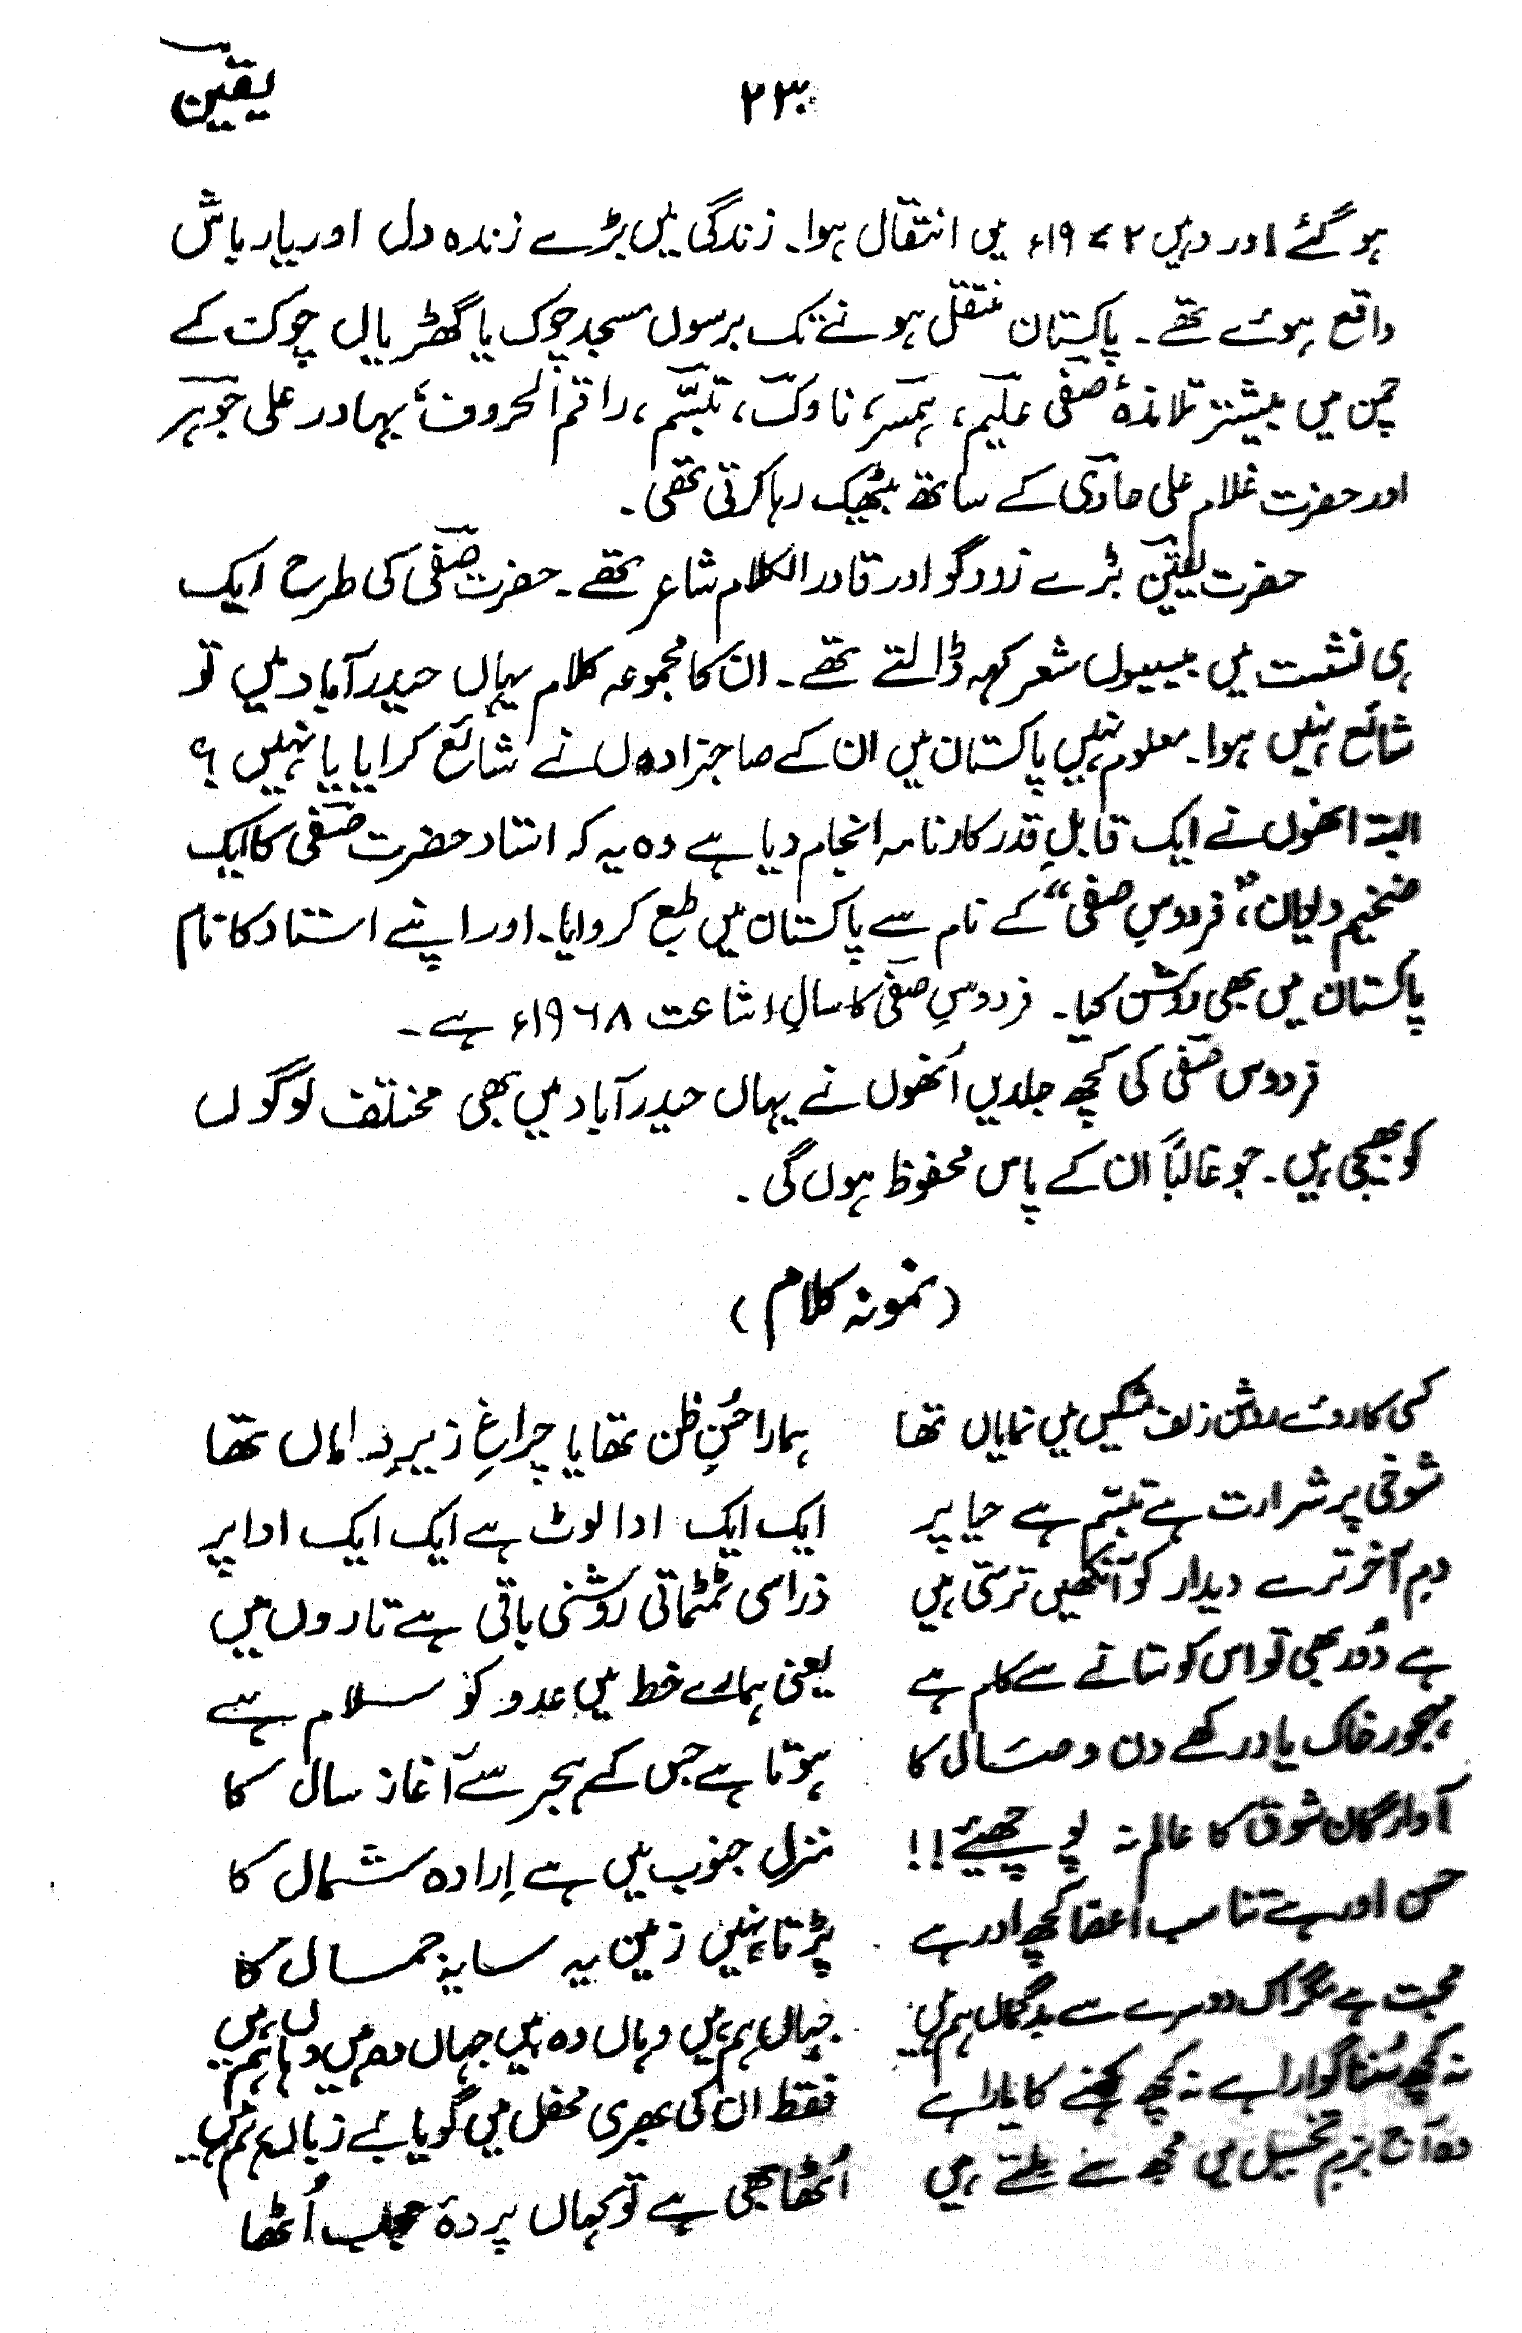 یقین
۲۳۰
ہو گئے اور وہیں ۱۹۷۲ء میں انتقال ہوا۔ زندگی میں بڑے زندہ دل اور یار باش
واقع ہوئے تھے۔ پاکستان منتقل ہونے تک برسوں مسجد چوک یا گھڑیالی چوک کے
چمن میں بیشتر تلامذۂ صفی علیم، ہمسر، ناوک، تبسّم، راقم الحروف، بہادر علی جوہر
اور حضرت غلام علی حاوی کے ساتھ بیٹھیک رہا کرتی تھی۔
حضرت یقین بڑے زود گو اور قادر الکلام شاعر تھے۔ حضرت صفی کی طرح ایک
ہی نشست میں بیسیوں شعر کہہ ڈالتے تھے۔ ان کا مجموعہ کلام یہاں حیدرآباد میں تو
شائع نہیں ہوا۔ معلوم نہیں پاکستان میں ان کے صاحبزادوں نے شائع کرایا یا نہیں؟
البتہ انھوں نے ایک قابلِ قدر کارنامہ انجام دیا ہے وہ یہ کہ استاد حضرت صفی کا ایک
ضخیم دیوان "فردوسِ صفی" کے نام سے پاکستان میں طبع کروایا۔ اور اپنے استاد کا نام
پاکستان میں بھی روشن کیا۔ فردوسِ صفی کا سالِ اشاعت ۱۹۶۸ء ہے۔
فردوس صفی کی کچھ جلدیں اُنھوں نے یہاں حیدرآباد میں بھی مختلف لوگوں
کو بھیجی ہیں۔ جو غالباً ان کے پاس محفوظ ہوں گی۔
(نمونہ کلام)
کسی کا روئے روشن زلف مشکیں میں نمایاں تھا ہمارا حُسنِ ظن تھا یا چراغِ زیرِ داماں تھا
شوخی پر شرارت ہے تبسّم ہے حیا پر ایک ایک ادا لوٹ ہے ایک ایک ادا پر
دمِ آخر ترے دیدار کو آنکھیں ترستی ہیں ذرا سی ٹمٹماتی روشنی باقی ہے تاروں میں
ہے دُور بھی تو اس کو ستانے سے کام ہے یعنی ہمارے خط میں عدو کو سلام ہے
مہجور خاک یاد رکھے دن وصال کا ہوتا ہے جس کے ہجر سے آغاز سال کا
آوارگانِ شوق کا عالم نہ پوچھیئے!! منزل جنوب میں ہے اِرادہ شمال کا
حسن اور ہے تناسب اعضا کچھ اور ہے پڑتا نہیں زمین پہ سایہ جمال کا
محبت ہے مگر اک دوسرے سے بدگماں ہم ہیں جہاں ہم ہیں وہاں وہ ہیں جہاں وہ ہیں وہاں ہم ہیں
نہ کچھ سُننا گوارا ہے نہ کچھ کہنے کا یارا ہے فقط ان کی بھری محفل میں گویا بے زباں ہم ہیں
وہ آج بزمِ تخیل میں مجھ سے ملتے ہیں اُٹھا بھی ہے تو کہاں پردۂ حجاب اُٹھا